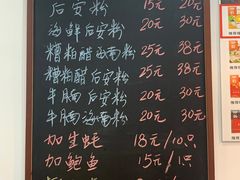 后安粉 15元 20元
海鲜后安粉 20元 30元
糟粕醋海南粉 25元 38元
糟粕醋后安粉 25元 38元
牛腩后安粉 20元 30元
牛腩海南粉 20元 30元
加生蚝 18元/10只
加鲍鱼 15元/1只